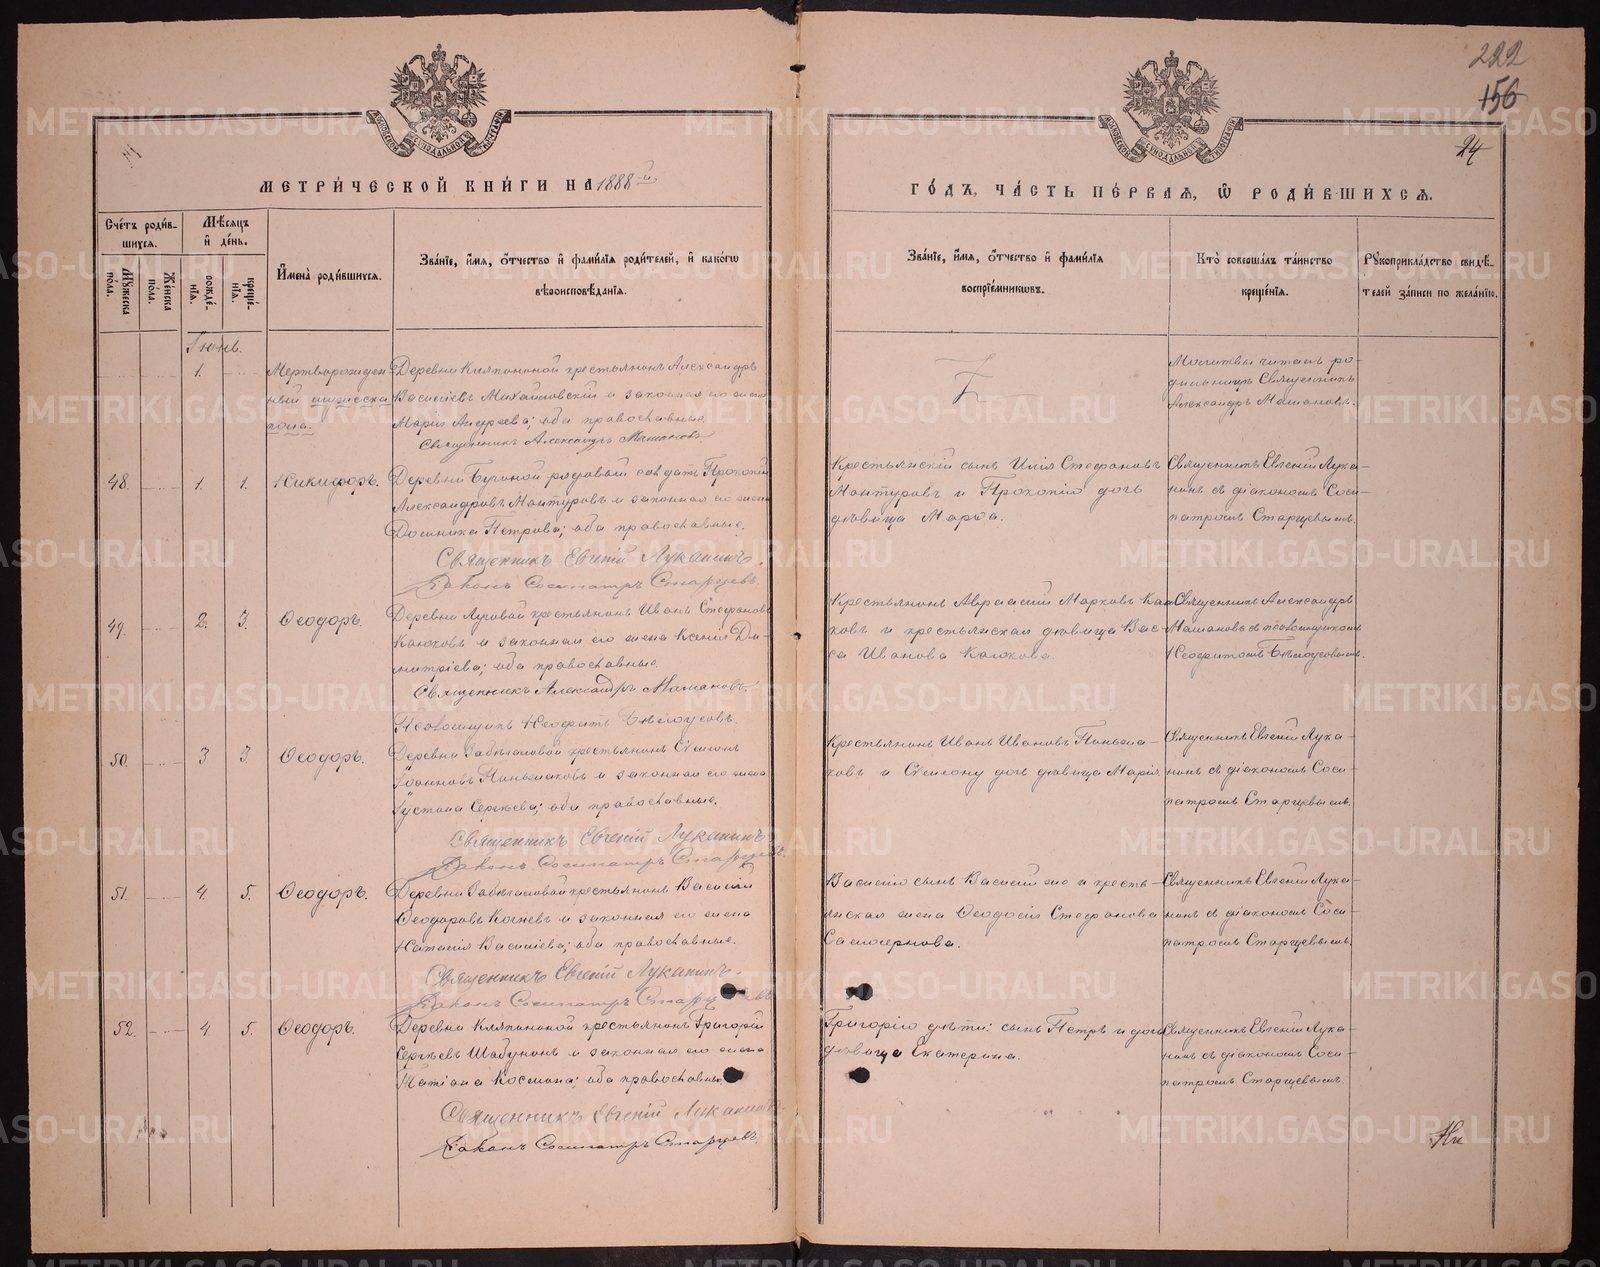 222
156
24
МЕТРИ́ЧЕСКОЙ КНИ́ГИ НА 1888-й
ГО́ДЪ, ЧА́СТЬ ПЕ́РВАЯ, Ѿ РОДИ́ВШИХСЯ.
Сче́тъ роди́в-
шихся.
Мꙋ́жеска по́ла.
Же́нска по́ла.
Мѣ́сяцъ и́ де́нь.
рожде́-
нїя.
креще́-
нїя.
И҆мена̀ роди́вшихся.
Зва́нїе, и҆́мя, ѻ҆́тчество и҆ фами́лїя роди́телей, и҆ како́гѡ
вѣроисповѣ́данїя.
Зва́нїе, и҆́мя, ѻ҆́тчество и҆ фами́лїя
воспрїе́мниковъ.
Кто̀ соверша́лъ та́инство
креще́нїя.
Рꙋкоприкла́дство свидѣ́-
телей за́писи по жела́нїю.
Іюнь.
1.
Мертворожден
ный мужеска
пола.
Деревни Кляпининой крестьянинъ Александръ
Васильевъ Михайловскій и законная его жена
Марія Андреева; оба православные.
Священникъ Александръ Машановъ.
Молитвы читалъ ро-
дильницѣ Священникъ
Александръ Машановъ.
48.
1.
1.
Никифоръ.
Деревни рядовый солдатъ Прокопій
Александровъ Мантуровъ и законная его жена
Домника Петрова; оба православные.
Священникъ Евгеній Луканинъ.
Діаконъ Сосипатръ Старцевъ.
Крестьянскій сынъ Илія Стефановъ
Мантуровъ и Прокопію дочь
дѣвица Марѳа.
Священникъ Евгеній Лука-
нинъ съ діакономъ Соси-
патромъ Старцевымъ.
49.
2.
3.
Ѳеодоръ.
Деревни Луговой крестьянинъ Иванъ Стефановъ
Канюковъ и законная его жена Ксенія Ди-
митріева; оба православные.
Священникъ Александръ Машановъ.
Псаломщикъ Неофитъ Бѣлоусовъ.
Крестьянинъ Авраамій Марковъ Каню-
ковъ и крестьянская дѣвица Вас-
са Иванова Канюкова.
Священникъ Александръ
Машановъ съ псаломщикомъ
Неофитомъ Бѣлоусовымъ.
50.
3
3.
Ѳеодоръ.
Деревни крестьянинъ Симеонъ
Іоанновъ Паньшаковъ и законная его жена
Іустина Сергѣева; оба православные.
Священникъ Евгеній Луканинъ
Діаконъ Сосипатръ Старцевъ.
Крестьянинъ Иванъ Ивановъ Паньша-
ковъ и Симеону дочь дѣвица Марія.
Священникъ Евгеній Лука-
нинъ съ діакономъ Соси-
патромъ Старцевымъ.
51.
4.
5.
Ѳеодоръ.
Деревни крестьянинъ Василій
Ѳеодоровъ Кочневъ и законная его жена
Наталія Васильева; оба православные.
Священникъ Евгеній Луканинъ.
Діаконъ Сосипатръ Старцевъ
Василію сынъ Василій же и кресть-
янская жена Ѳеодосія Стефанова
Самочернова.
Священникъ Евгеній Лука-
нинъ съ діакономъ Соси-
патромъ Старцевымъ.
52.
4
5.
Ѳеодоръ.
Деревни Кляпининой крестьянинъ Григорій
Сергѣевъ Шабунинъ и законная его жена
Татіана Космина; оба православные
Священникъ Евгеній Луканинъ
Діаконъ Сосипатръ Старцевъ.
Григорію дѣти: сынъ Петръ и дочь
дѣвица Екатерина.
Священникъ Евгеній Лука-
нинъ съ діакономъ Соси-
патромъ Старцевымъ.
METRIKI.GASO-URAL.RU